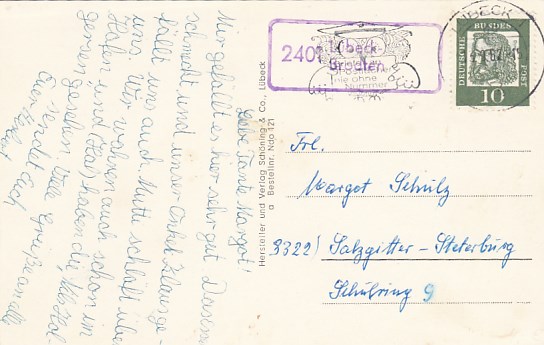 Liebe Tante Margot!
Mir gefällt es hier sehr gut. Das
schmeckt und unser Onkel Klaus ge-
fällt uns auch. Mutti schläft über
uns. Wir waren auch schon im
Hafen und
haben die
gesehen. Viele Grüße an alle
sendet Euch
Hersteller und Verlag Schöning & Co., Lübeck
a Bestellnr. Ndo 121
2401 Lübeck-
Brodten
Nummer
LÜBECK
DEUTSCHE BUNDESPOST
10
Frl.
Margot Schulz
3322) Salzgitter-Steterburg
Schulring 9